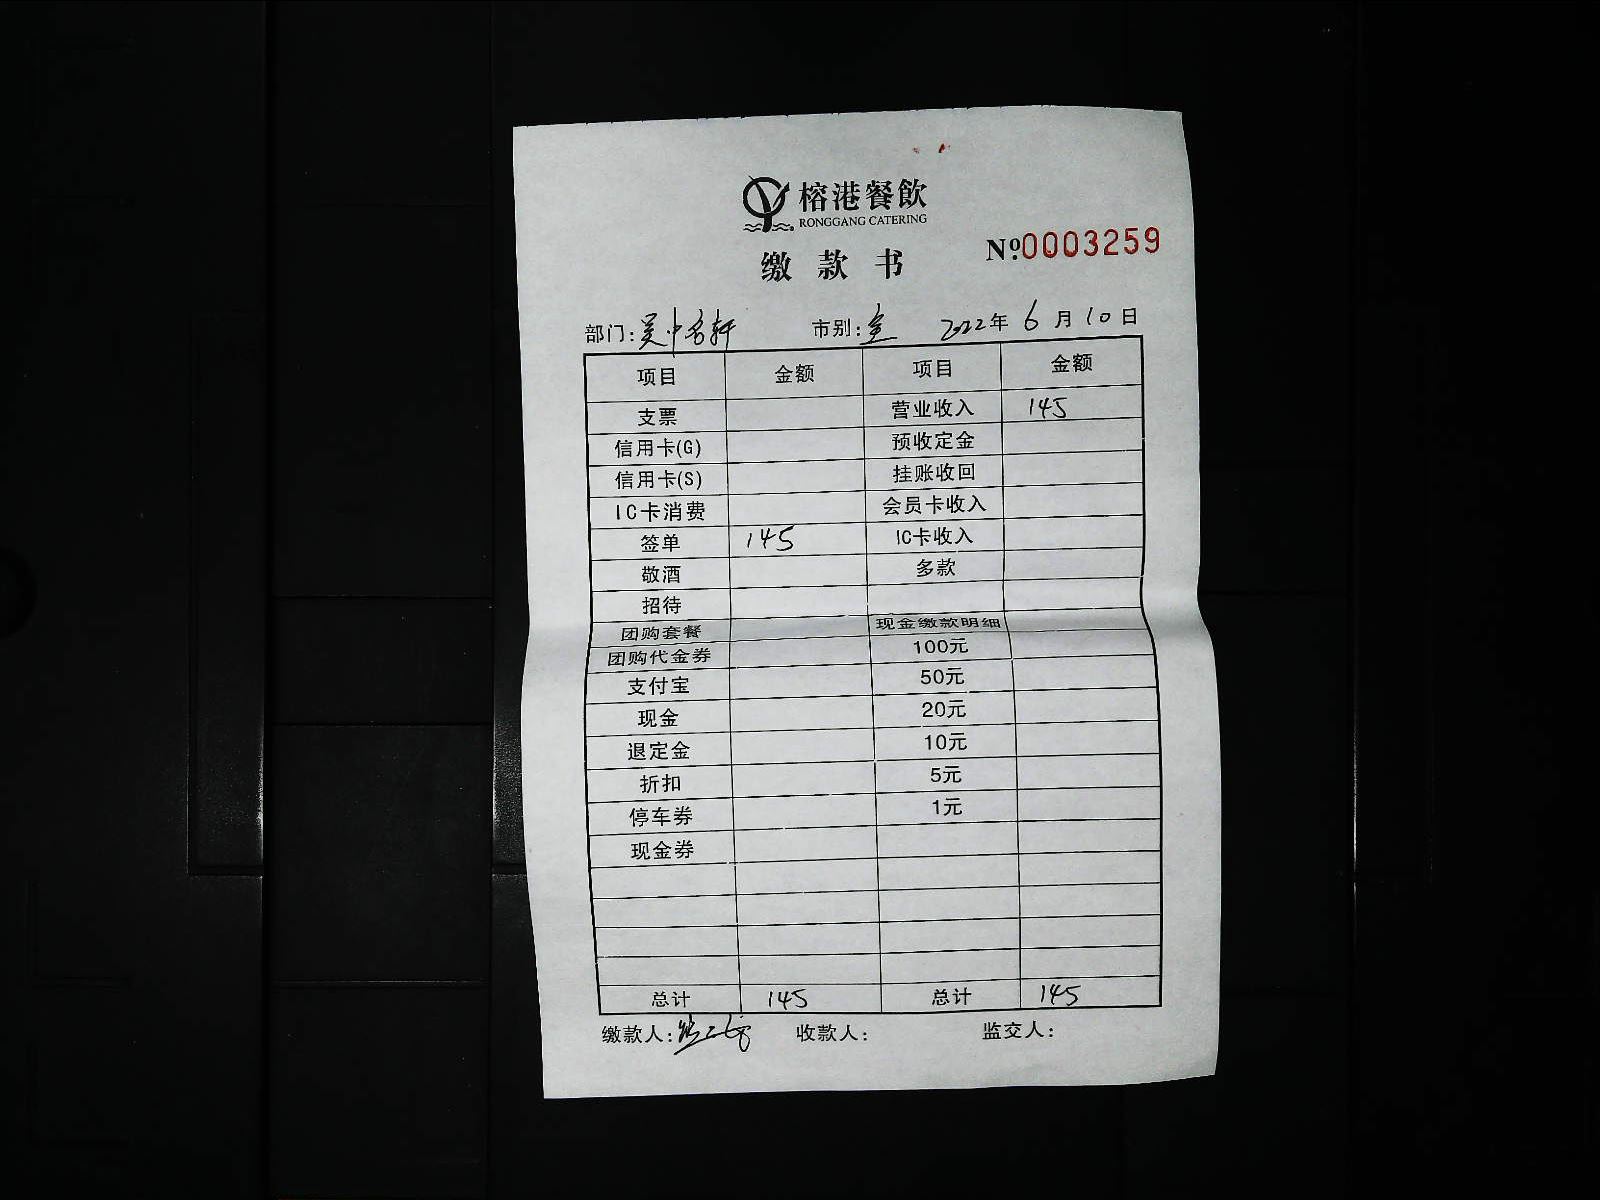 榕港餐飲
RONGGANG CATERING
缴款书 №0003259
部门:吴中名轩 市别: 2022年6月10日
项目 金额 项目 金额
支票 营业收入 145
信用卡(G) 预收定金
信用卡(S) 挂账收回
IC卡消费 会员卡收入
签单 145 IC卡收入
敬酒 多款
招待
团购套餐 现金缴款明细
团购代金券 100元
支付宝 50元
现金 20元
退定金 10元
折扣 5元
停车券 1元
现金券
总计 145 总计 145
缴款人: 收款人: 监交人: